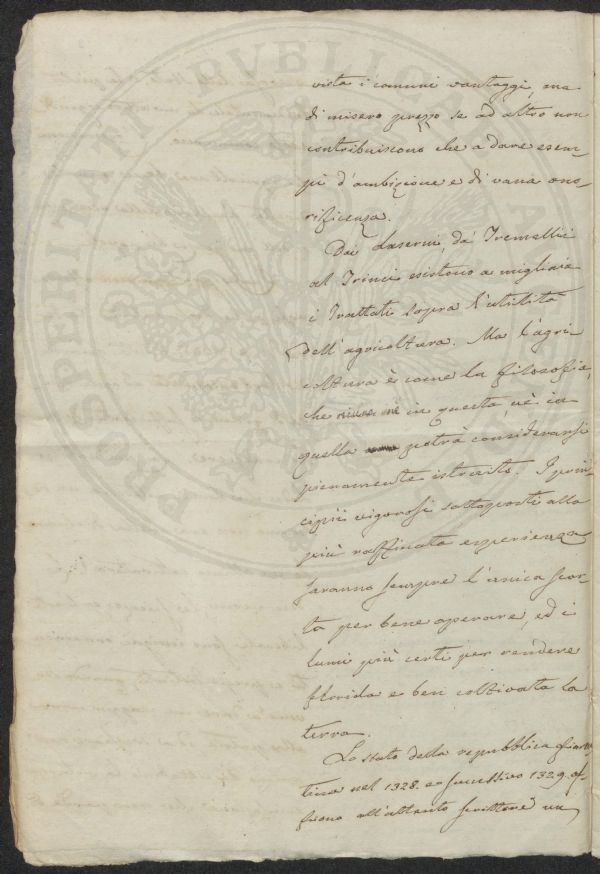 vista i comuni vantaggi, ma
di misero prezzo se ad altro non
contribuiscono che a dare esem-
pi d'ambizione e di vana ono-
rificenza.
Dai Laserni, da' Tremellii
al Trinci esistono a migliaia
i Trattati sopra l'utilità
dell'agricoltura. Ma l'agri-
coltura è come la filosofia,
che in questa, nè in
quella potrà considerarsi
pienamente istruito. I prin-
cipii rigorosi sottoposti alla
più raffinata esperienza
saranno sempre l'unica scor-
ta per bene operare, ed i
lumi più certi per rendere
florida e ben coltivata la
terra.
Lo stato della repubblica fioren-
tina nel 1328. e successivo 1329. of-
frono all'attento scrittore un
PROSPERITATI PVBLICAE